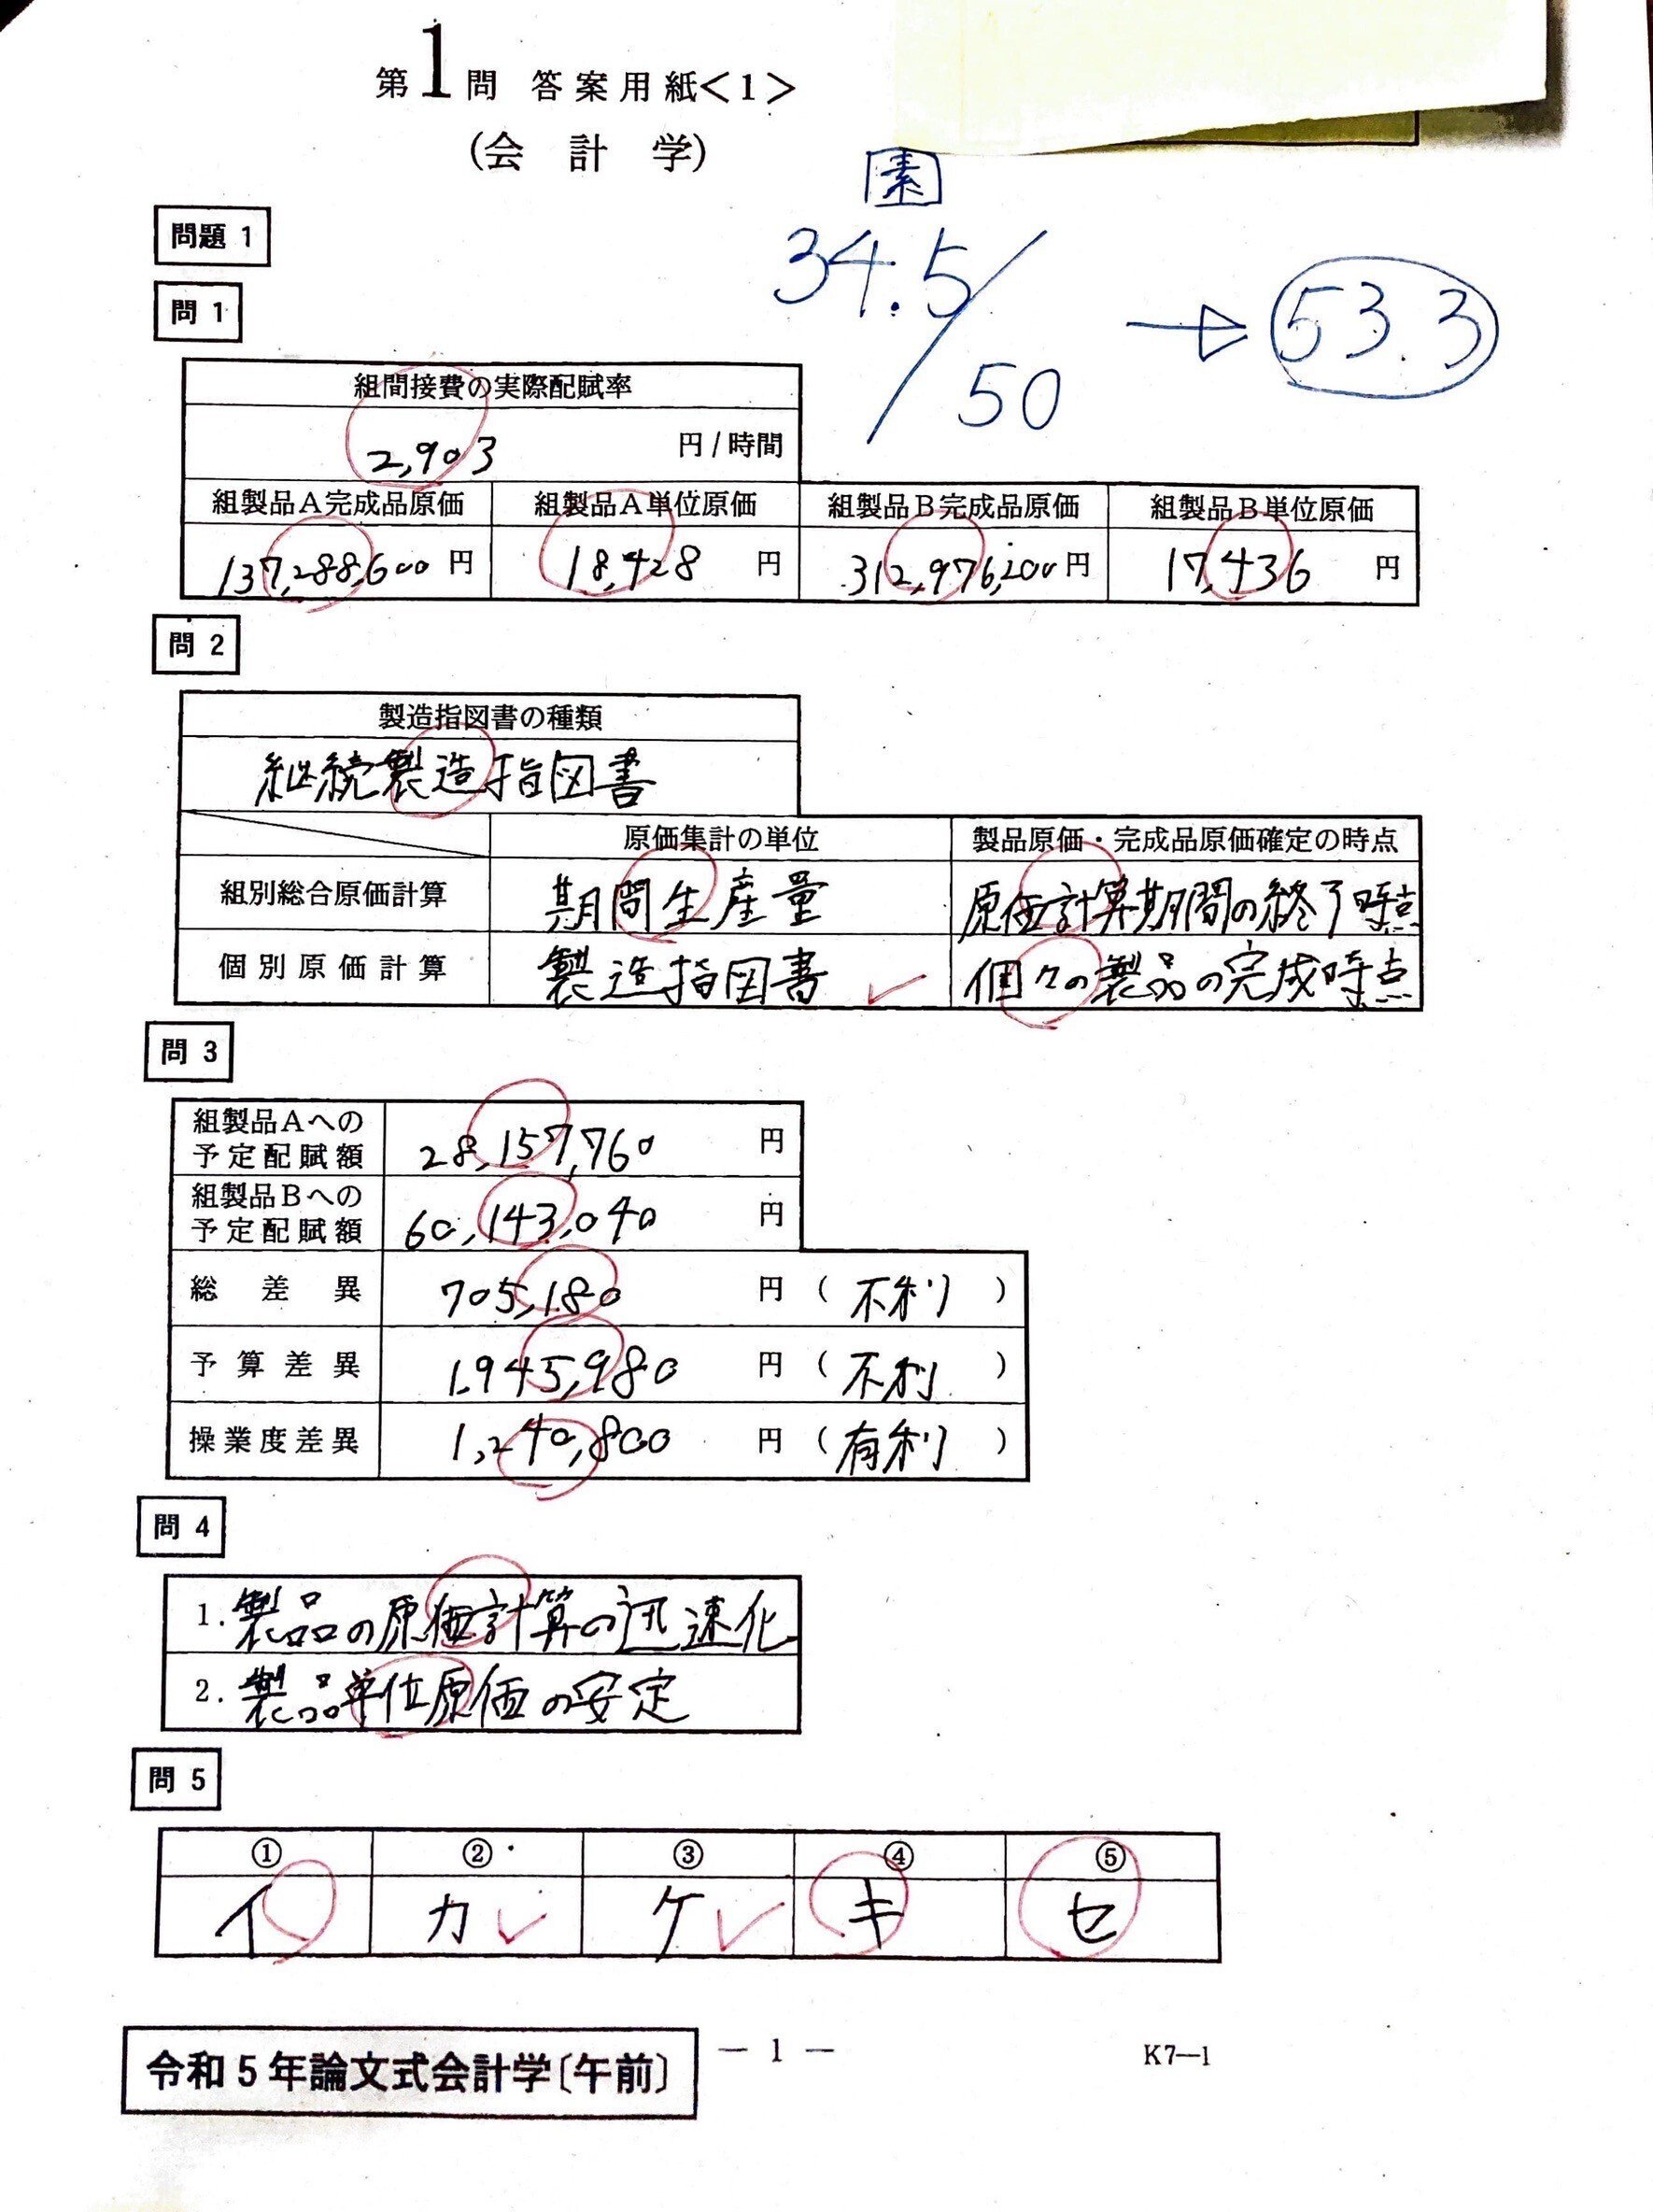 第1問 答案用紙<1>
(会計学)
素
34.5/50 → 53.3
問題 1
問 1
組間接費の実際配賦率
2,903 円/時間
組製品A完成品原価 組製品A単位原価 組製品B完成品原価 組製品B単位原価
137,288,600 円 18,428 円 312,976,200 円 17,436 円
問 2
製造指図書の種類
継続製造指図書
原価集計の単位 製品原価・完成品原価確定の時点
組別総合原価計算 期間生産量 原価計算期間の終了時点
個別原価計算 製造指図書 個々の製品の完成時点
問 3
組製品Aへの
予定配賦額 28,157,760 円
組製品Bへの
予定配賦額 60,143,040 円
総差異 705,180 円 (不利)
予算差異 1,945,980 円 (不利)
操業度差異 1,240,800 円 (有利)
問 4
1. 製品の原価計算の迅速化
2. 製品単位原価の安定
問 5
① ② ③ ④ ⑤
イ カ ケ キ セ
令和5年論文式会計学〔午前〕
— 1 —
K7—1